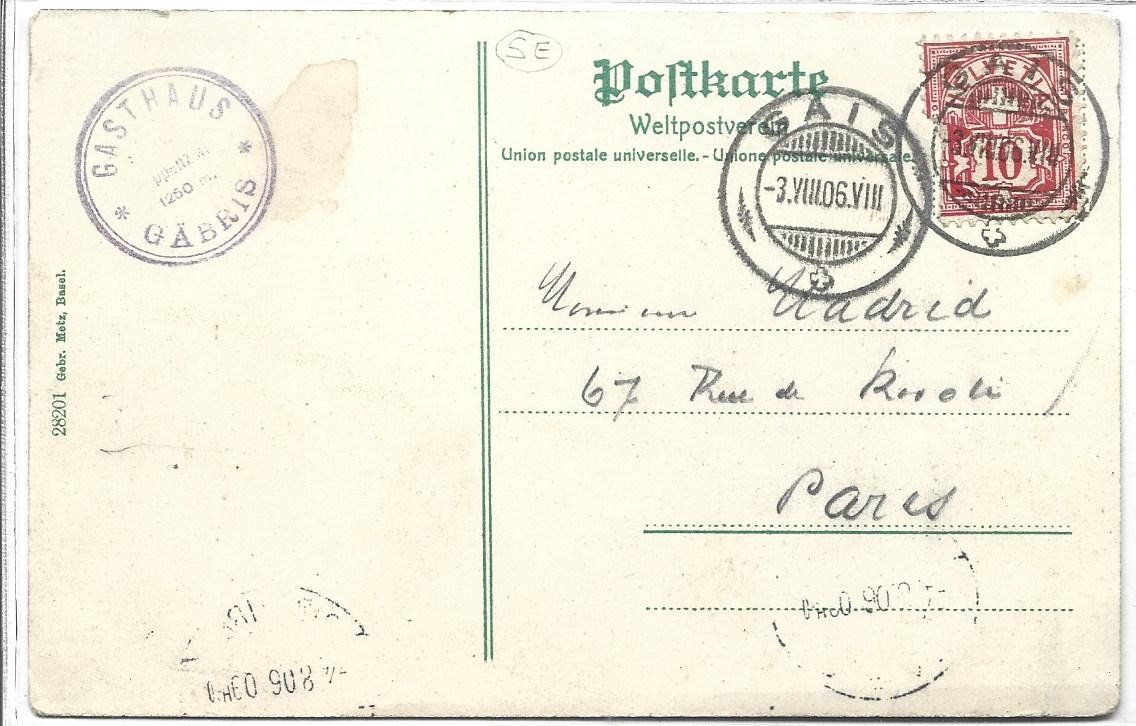 SE
Postkarte
Weltpostverein
Union postale universelle. - Unione postale universale.
GASTHAUS
1250 m.
* GÄBRIS *
GAIS
-3.VIII.06.VIII
HELVETIA
10
Monsieur Madrid
67 Rue de Rivoli
Paris
28201 Gebr. Metz, Basel.